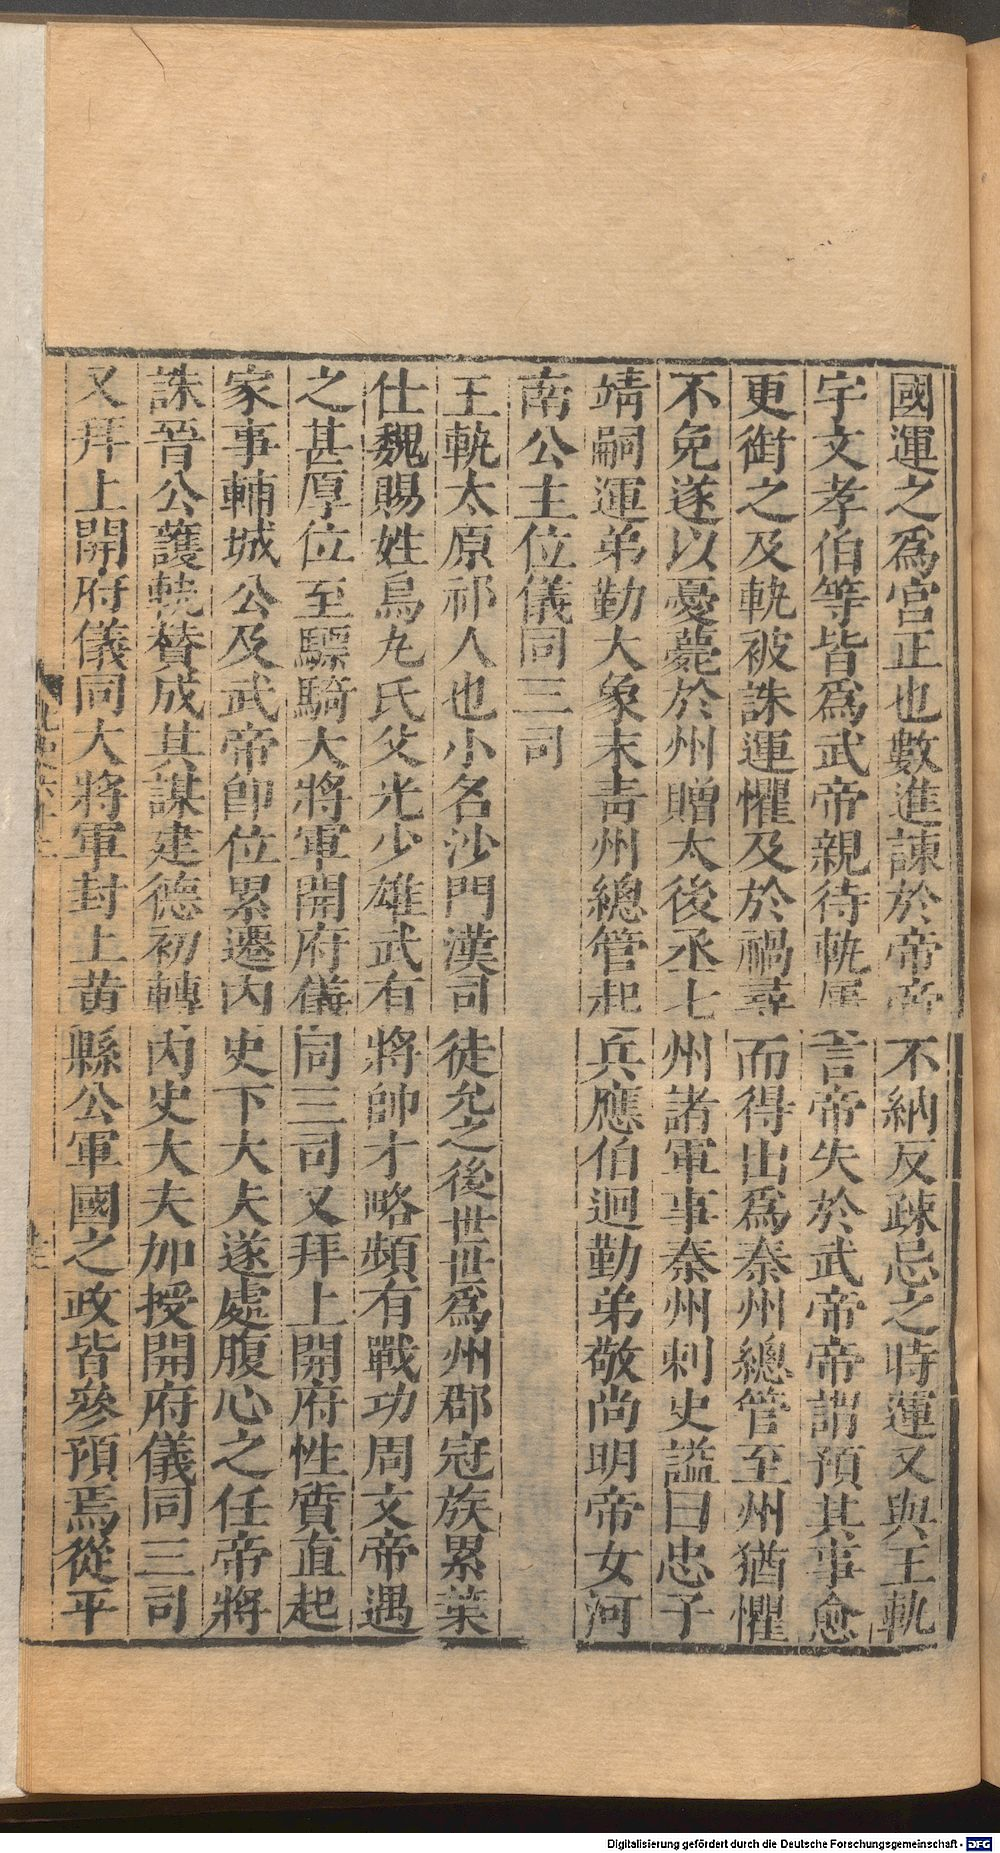 國運之爲宮正也數進諫於帝帝不納反疎忌之時運又與王軌
宇文孝伯等皆爲武帝親待軌屢言帝失於武帝帝謂預其事愈
更銜之及軌被誅運懼及於禍尋而得出爲秦州總管至州猶懼
不免遂以憂薨於州贈大後丞七州諸軍事秦州刺史謚曰忠子
靖嗣運弟勤大象末青州總管起兵應伯迴勤弟敬尚明帝女河
南公主位儀同三司
王軌太原祁人也小名沙門漢司徒允之後世世爲州郡冠族累葉
仕魏賜姓烏丸氏父光少雄武有將帥才略頻有戰功周文帝遇
之甚厚位至驃騎大將軍開府儀同三司又拜上開府性質直起
家事輔城公及武帝卽位累遷內史下大夫遂處腹心之任帝將
誅晉公護軌贊成其謀建德初轉內史大夫加授開府儀同三司
又拜上開府儀同大將軍封上黄縣公軍國之政皆參預焉從平
Digitalisierung gefördert durch die Deutsche Forschungsgemeinschaft - DFG